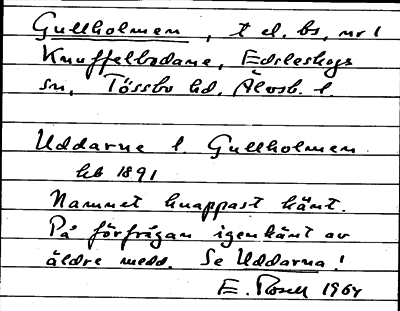 Gullholmen, t el. bs, nr 1
Knuffelbodane, Edsleskogs
sn, Tössbo hd, Älvsb. l.
Uddarne l. Gullholmen
hb 1891
Namnet knappast känt.
På förfrågan igenkänt av
äldre medd. Se Uddarna!
E. Rosell 1964